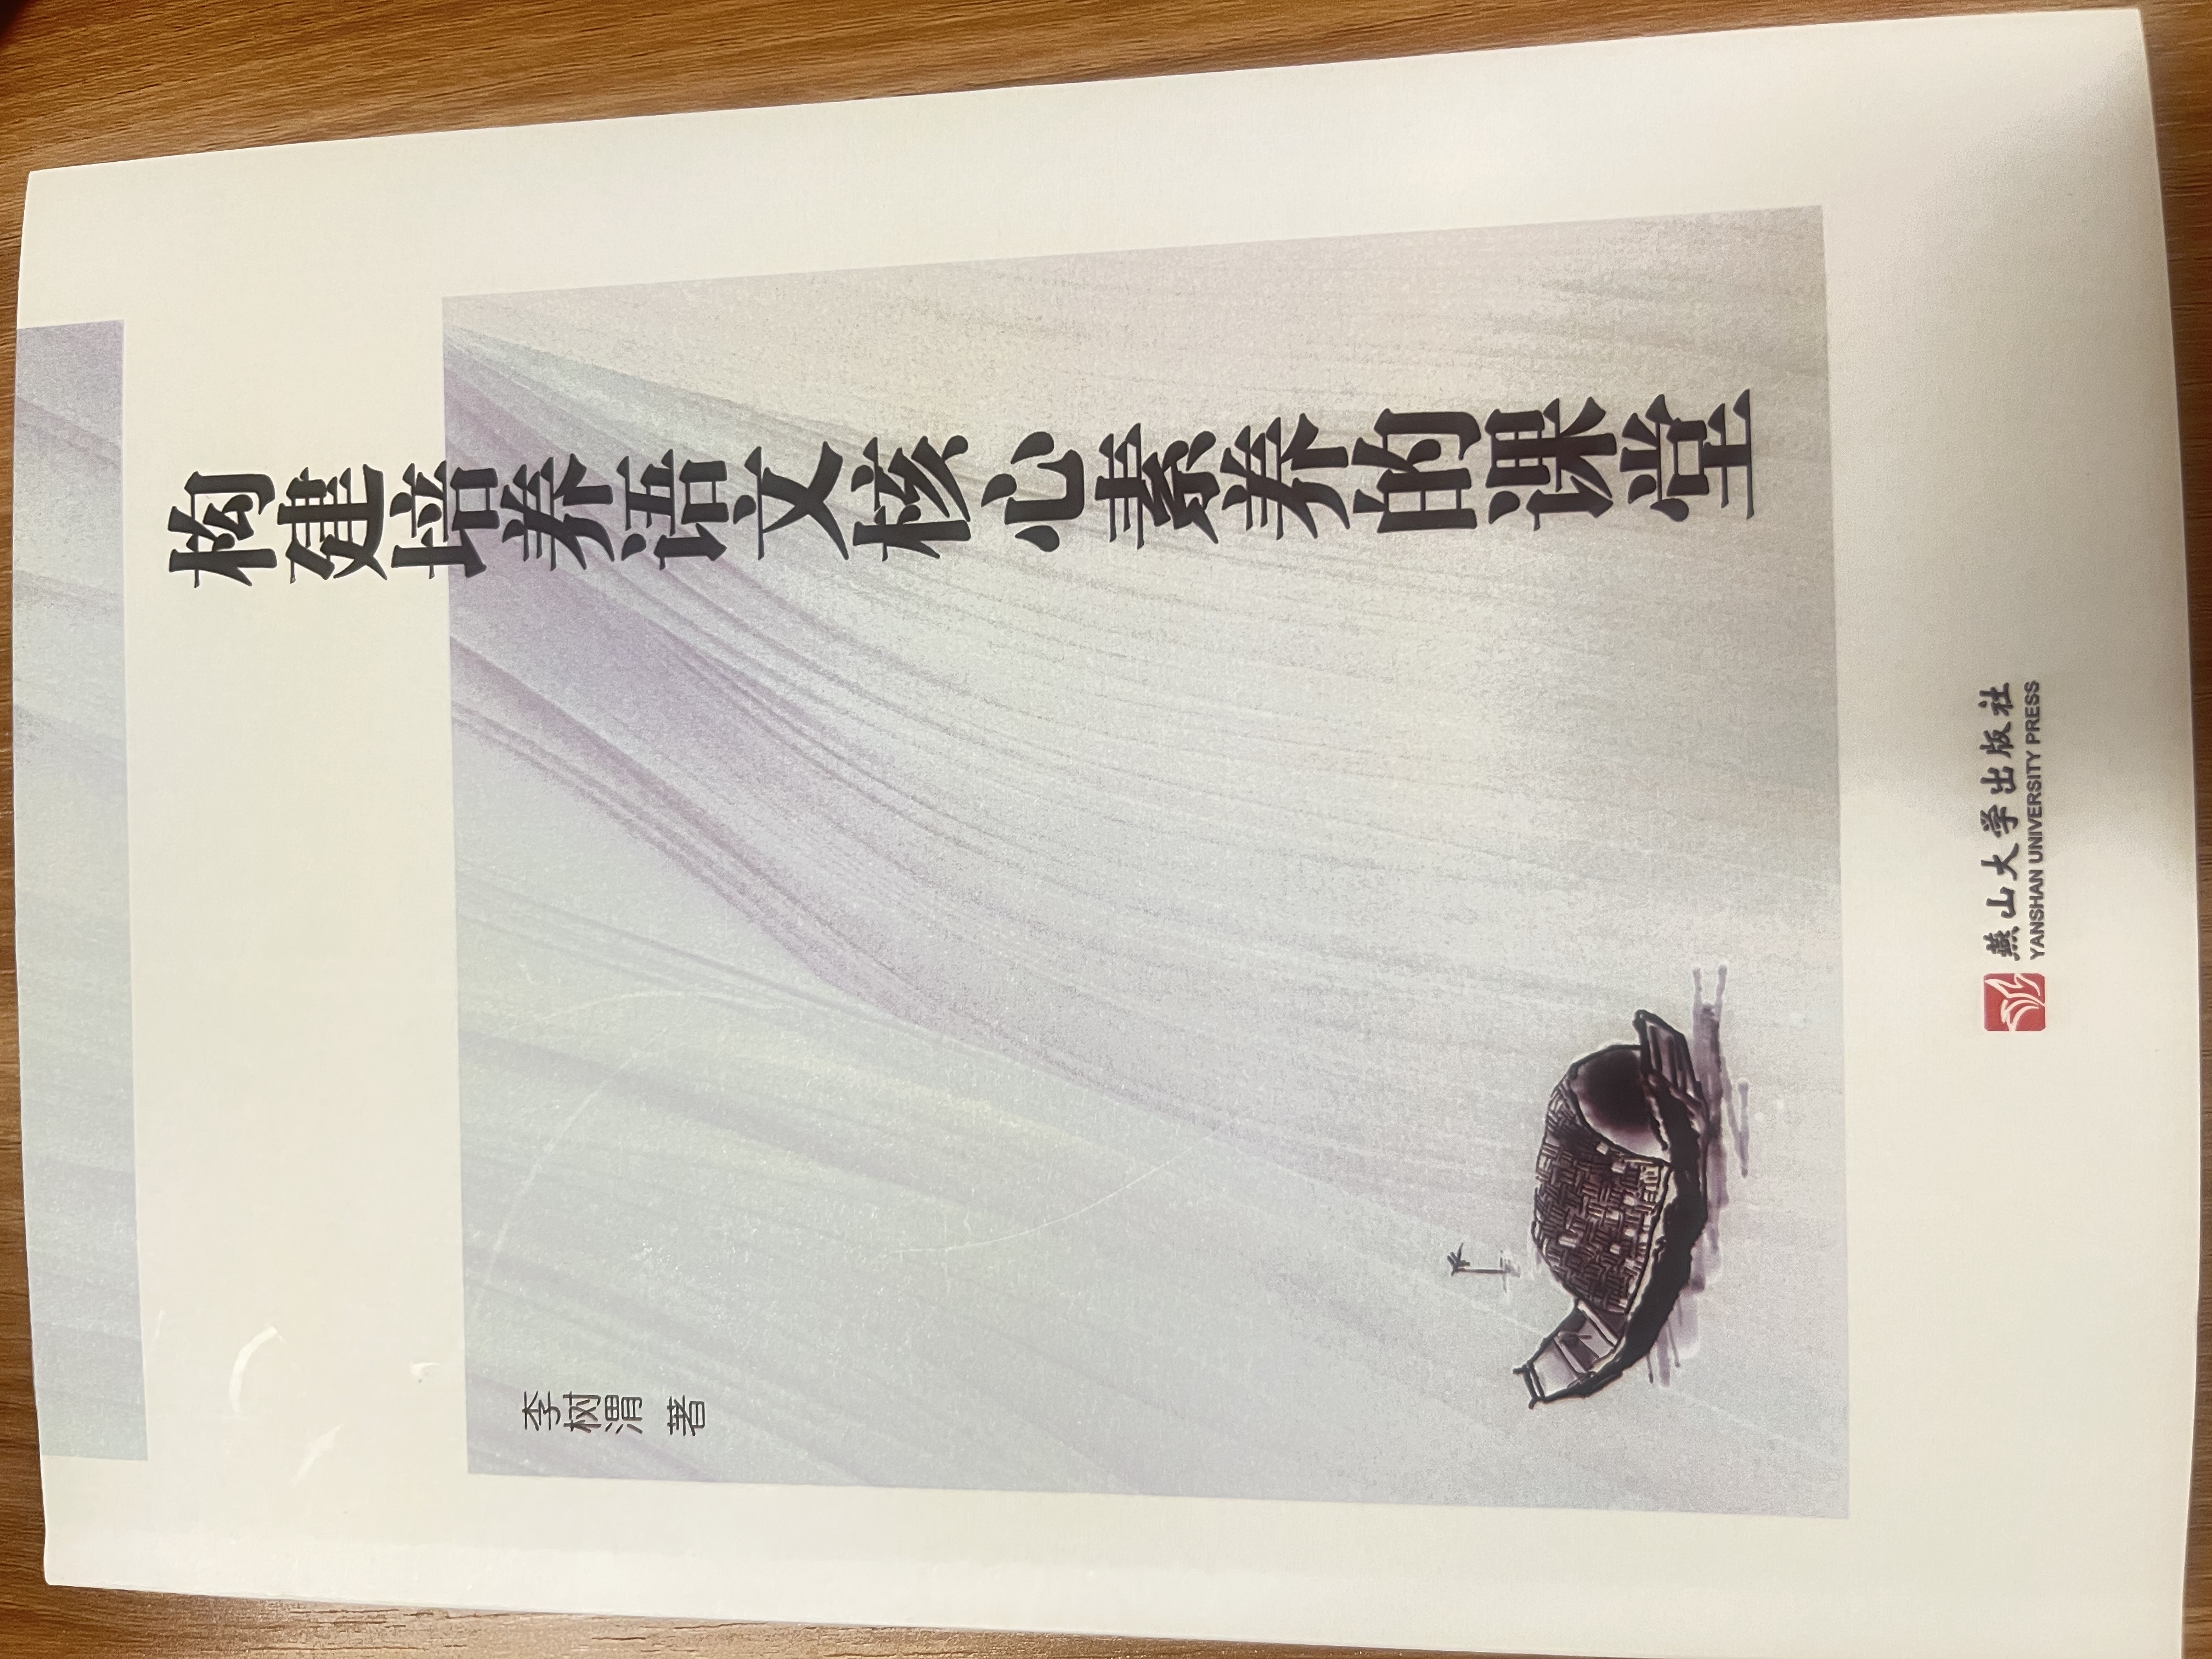 构建培养语文核心素养的课堂
李树渭 著
燕山大学出版社
YANSHAN UNIVERSITY PRESS